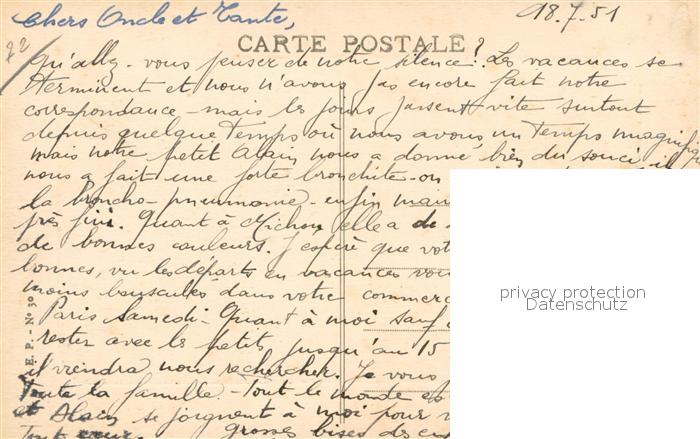 Chers Oncle et Tante,
18.7.51
22
CARTE POSTALE
Qu'allez-vous penser de notre silence ? Les vacances se
terminent et nous n'avons pas encore fait notre
correspondance - mais les jours passent vite surtout
depuis quelque temps où nous avons un temps magnifique
mais notre petit Alain nous a donné bien du souci il
nous a fait une forte bronchite - on
la broncho-pneumonie - enfin main
près fini. Quant à Michou elle a de
de bonnes couleurs. J'espère que vot
bonnes, vu les départs en vacances vous
moins bousculés dans votre commerc
Paris samedi. Quant à moi sauf
rester avec les petits jusqu'au 15
il viendra nous rechercher. Je vous
toute la famille - Tout le monde
et Alain se joignent à moi pour
Tout cœur. Grosses bises des enf
E.P. - N° 30
privacy protection
Datenschutz